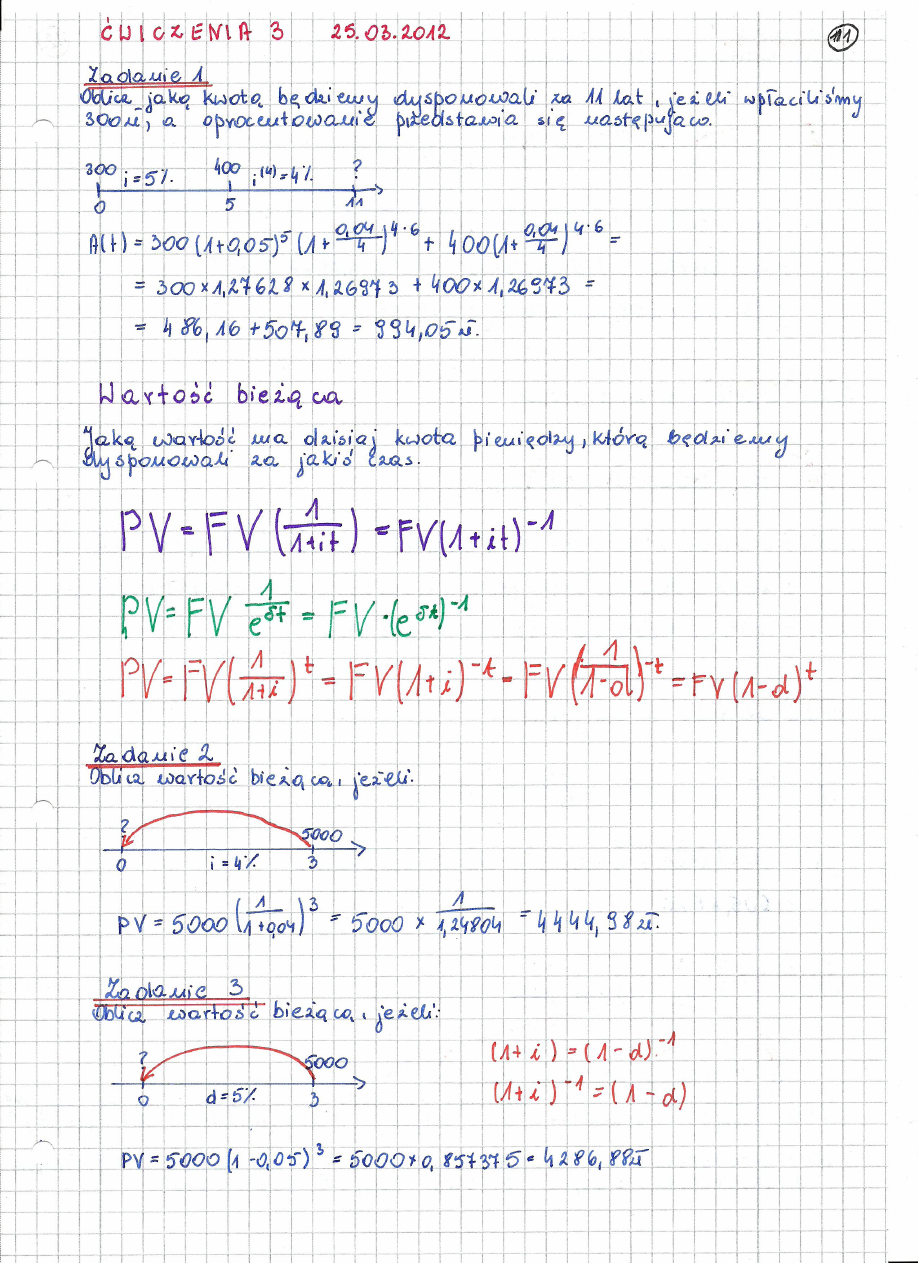 ĆWICZENIA 3 25.03.2012
111
Zadanie 1
Oblicz jaką kwotą będziemy dysponowali za 11 lat, jeżeli wpłaciliśmy
300zł, a oprocentowanie przedstawia się następująco.
300 i = 5% 400 i⁽⁴⁾ = 4% ?
0 5 11
A(t) = 300 (1+0,05)⁵ (1 + 0,04/4)^4·6 + 400 (1 + 0,04/4)^4·6 =
= 300 × 1,27628 × 1,26973 + 400 × 1,26973 =
= 486,16 + 507,89 = 994,05 zł.
Wartość bieżąca
Jaką wartość ma dzisiaj kwota pieniędzy, którą będziemy
dysponowali za jakiś czas.
PV = FV (1/(1+it)) = FV(1+it)⁻¹
PV = FV 1/e^δt = FV·(e^δt)⁻¹
PV = FV (1/(1+i))^t = FV (1+i)^-t = FV (1/(1-d))^-t = FV (1-d)^t
Zadanie 2
Oblicz wartość bieżącą, jeżeli:
? 5000
0 i = 4% 3
PV = 5000 (1/(1+0,04))³ = 5000 × 1/1,24804 = 4444,98 zł.
Zadanie 3
Oblicz wartość bieżącą, jeżeli:
? 5000
0 d = 5% 3
(1+i) = (1-d)⁻¹
(1+i)⁻¹ = (1-d)
PV = 5000 (1-0,05)³ = 5000 × 0,857375 = 4286,88 zł